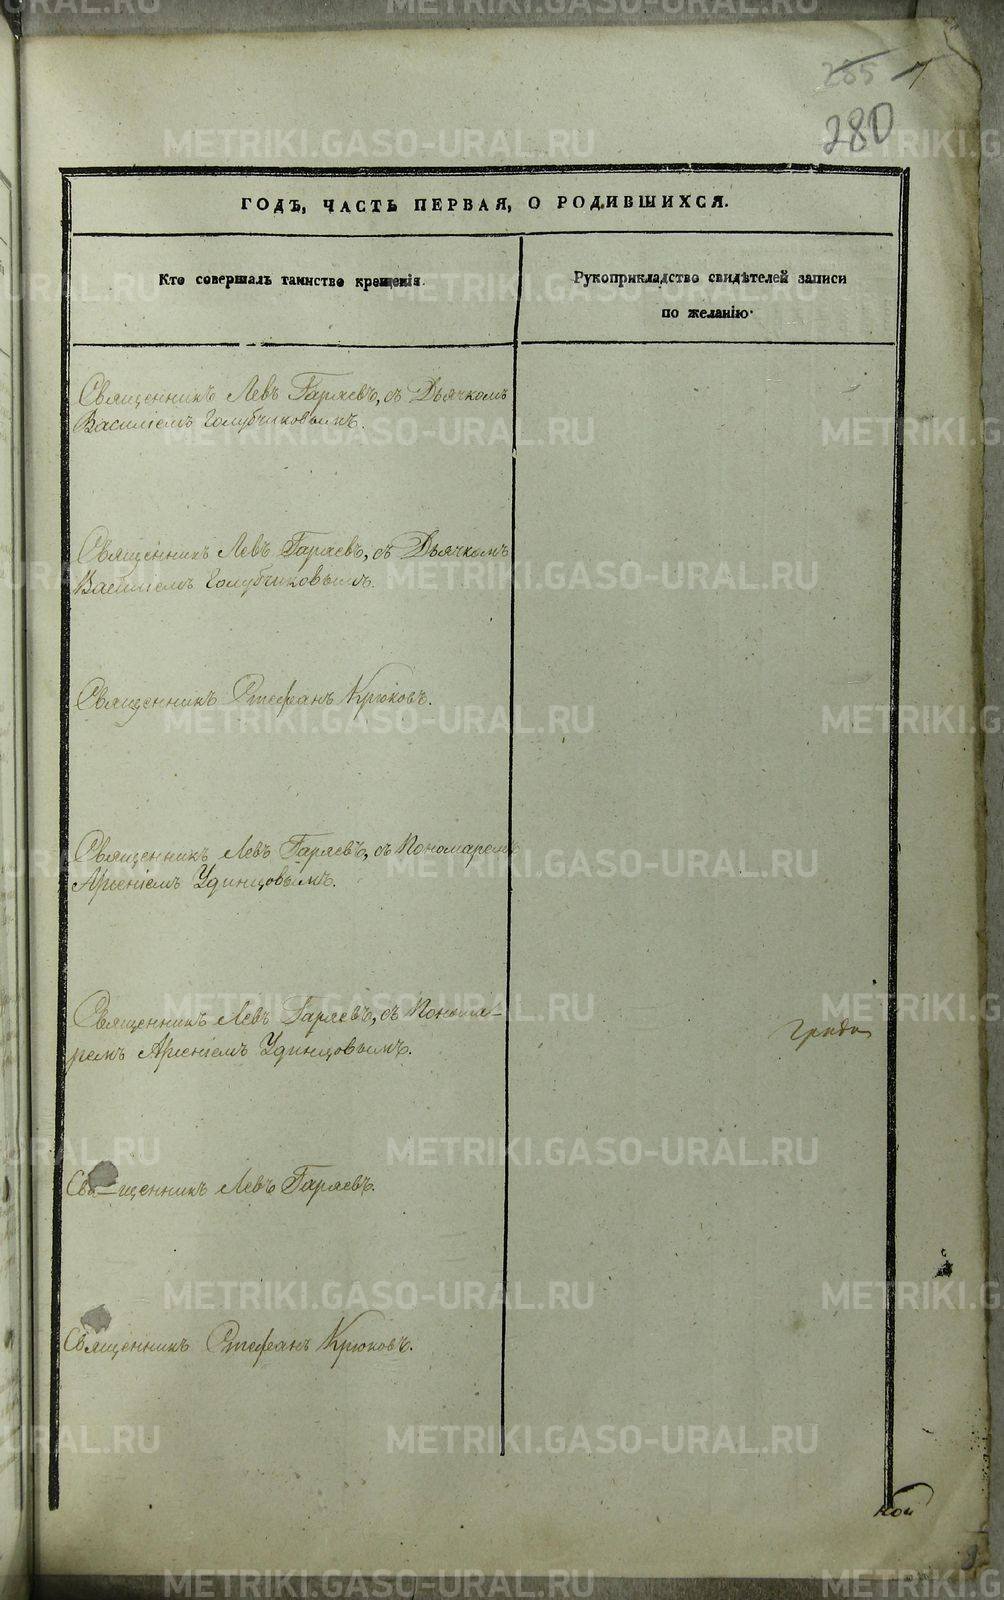 285
280
ГОДЪ, ЧАСТЬ ПЕРВАЯ, О РОДИВШИХСЯ.
Кто совершалъ таинство крещенія.
Рукоприкладство свидѣтелей записи
по желанію.
Священникъ Левъ Гаряевъ, съ Дьячкомъ
Василіемъ Голубчиковымъ.
Священникъ Левъ Гаряевъ, съ Дьячкомъ
Василіемъ Голубчиковымъ.
Священникъ Стефанъ Крюковъ.
Священникъ Левъ Гаряевъ, съ Пономаремъ
Арсеніемъ Удинцовымъ.
Священникъ Левъ Гаряевъ, съ Понома-
ремъ Арсеніемъ Удинцовымъ.
Священникъ Левъ Гаряевъ.
Священникъ Стефанъ Крюковъ.
кой
METRIKI.GASO-URAL.RU